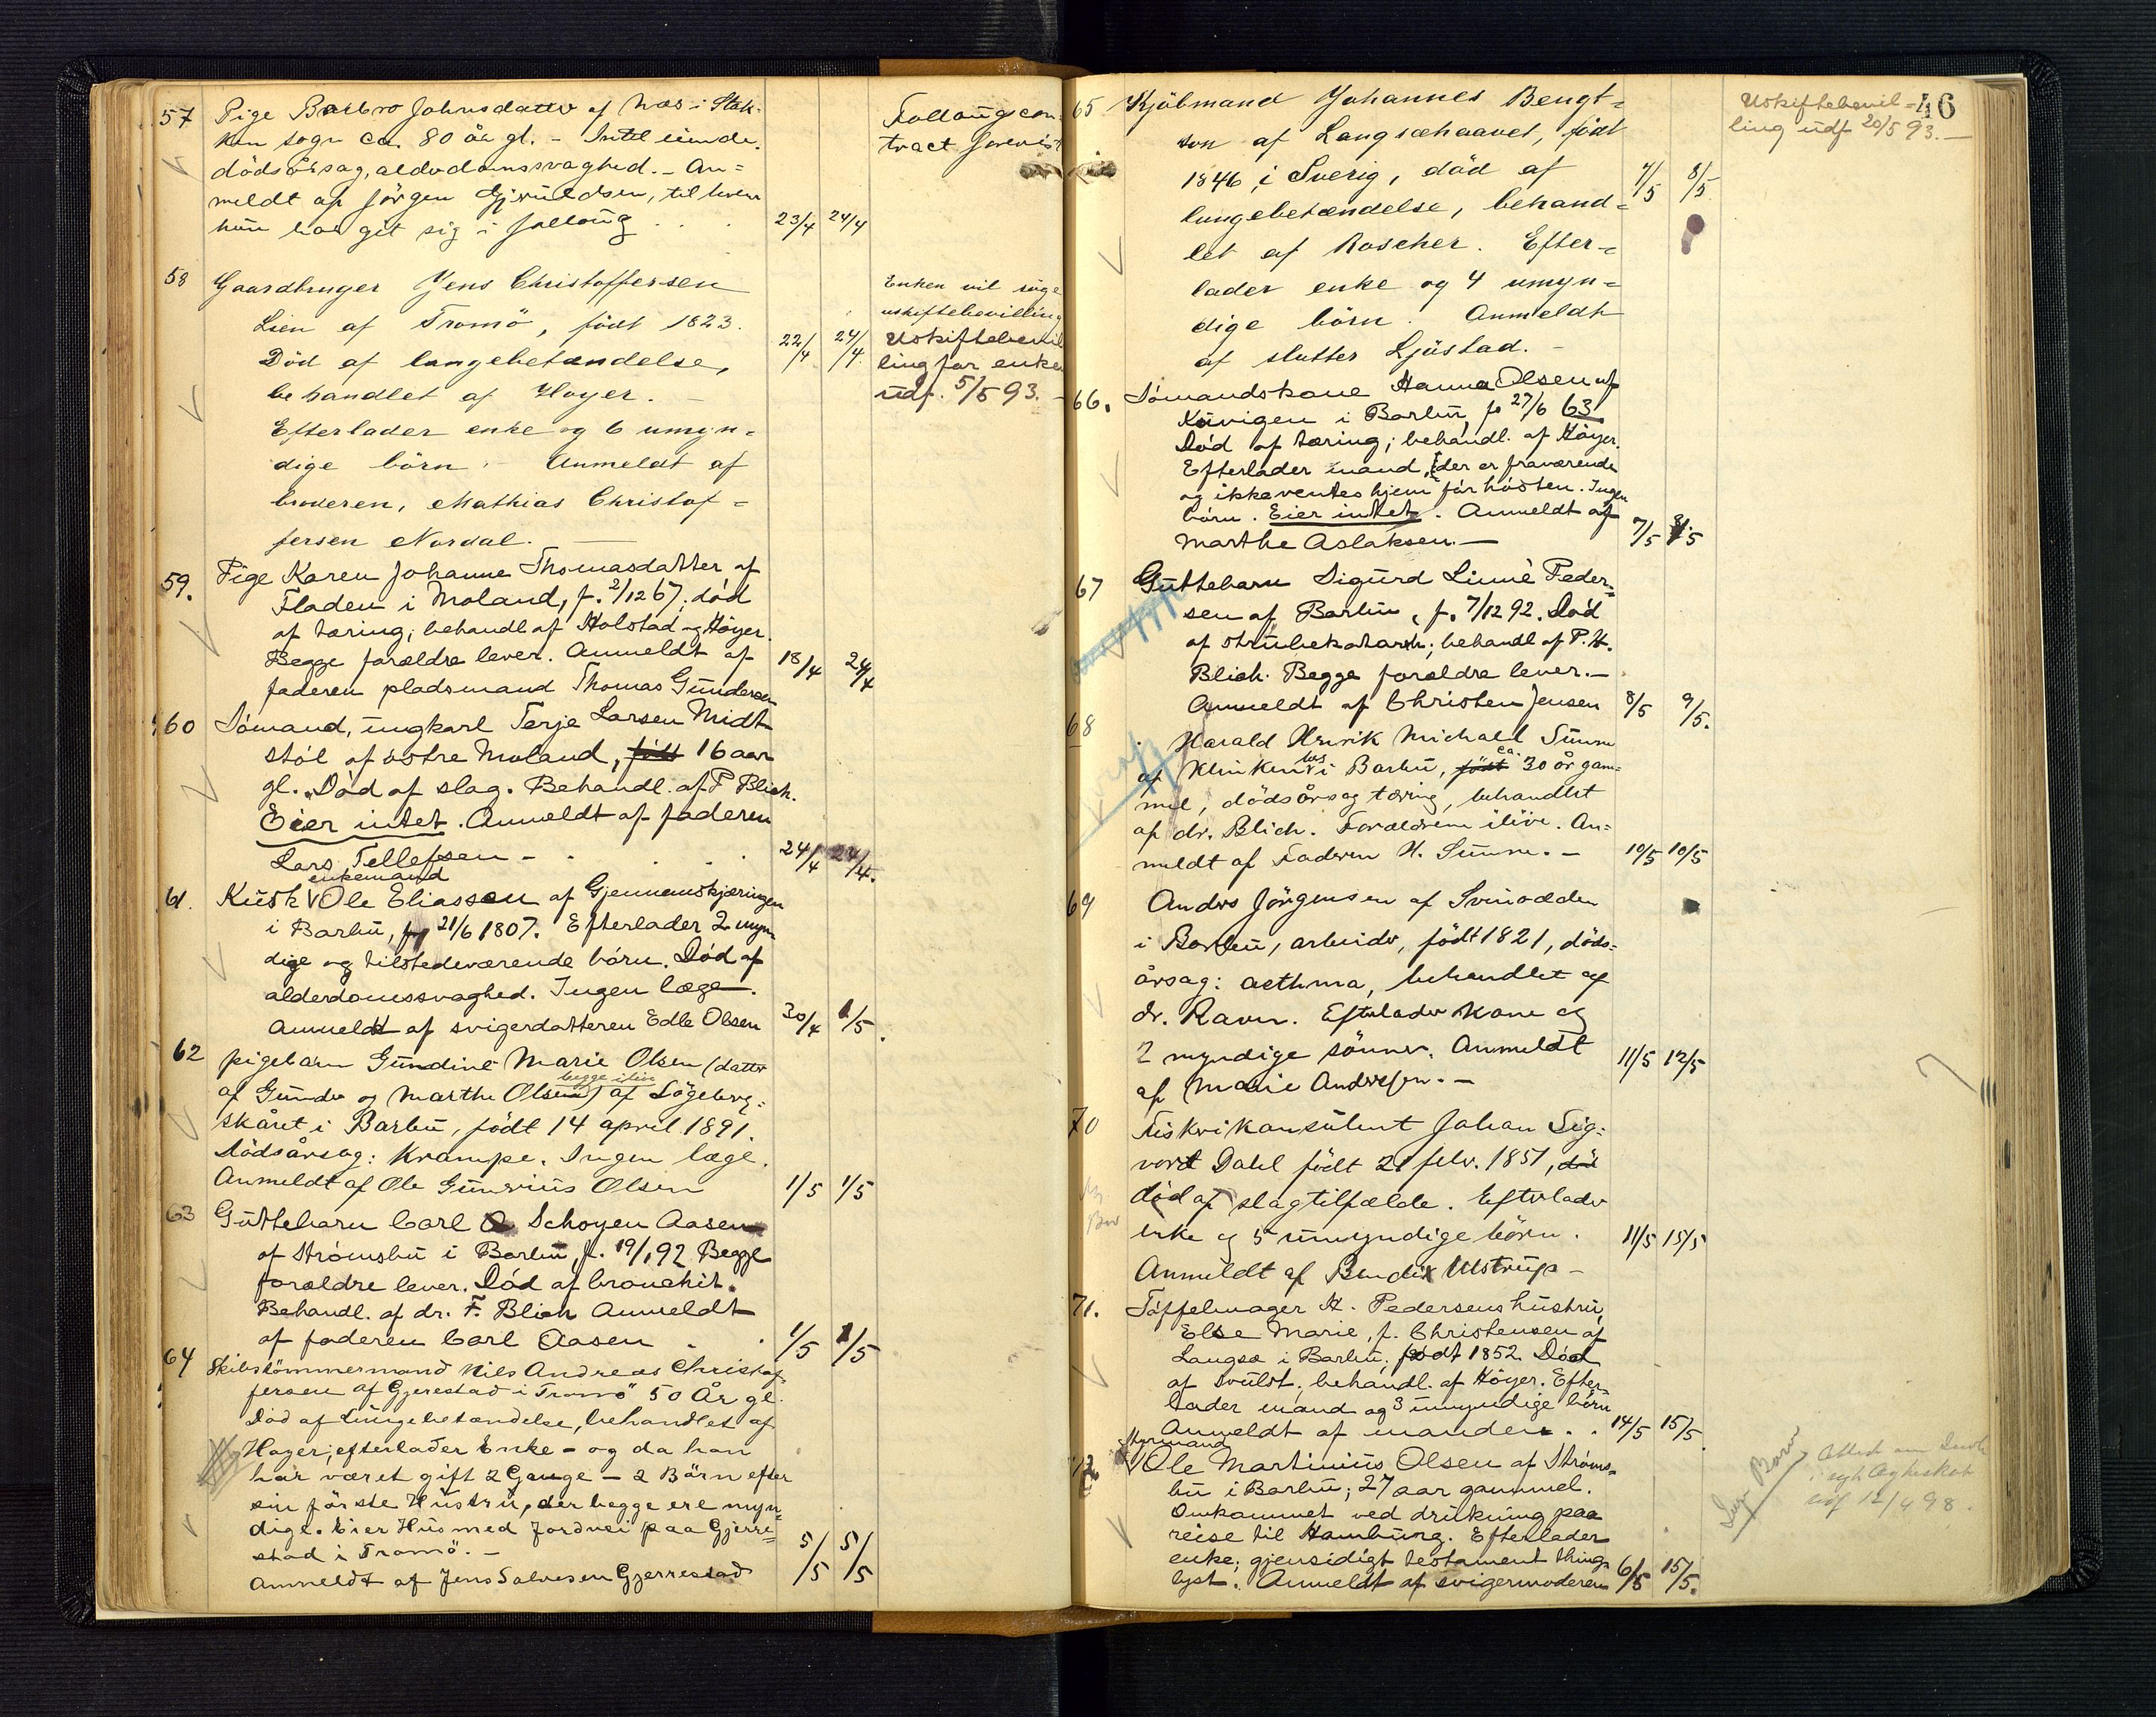 57 Pige Barbro Johnsdatter af Næs i Stok-
ken sogn ca. 80 år gl. - Intet eiende.
dödsårsag, alderdomssvaghed. - An=
meldt af Jörgen Gjeruldsen, til hvem
hun har git sig i follaug . . . 23/4 24/4
Follaugscon-
tract forevist
58 Gaardbruger Jens Christoffersen
Lien af Tromö, födt 1823.
Död af lungebetændelse,
behandlet af Hoyer. -
Efterlader enke og 6 umyn=
dige börn. - Anmeldt af
broderen, Mathias Christof=
fersen Nordal. 22/4 24/4
Enken vil söge
uskiftebevilling
Uskiftebevil
ling for enken
udf. 5/5 93. -
59. Pige Karen Johanne Thomasdatter af
Fladen i Moland, f. 2/12 67; död
af tæring; behandl af Holstad og Höyer.
Begge forældre lever. Anmeldt af
faderen pladsmand Thomas Gundersen 18/4 24/4
60 Sömand, ungkarl Terje Larsen Midt
stöl af östre Moland, födt 16 aar
gl. Död af slag. Behandl. af P Blich.
Eier intet. Anmeldt af faderen
Lars Tellefsen - . . . 24/4 24/4.
enkemand
61. Kusk Ole Eliassen af Gjennemskjæringen
i Barbu, f 21/6 1807. Efterlader 2 myn
dige og tilstedeværende börn. Död af
alderdomssvaghed. Ingen læge.
Anmeldt af svigerdatteren Edle Olsen 30/4 1/5.
62 pigebarn Gundine Marie Olsen (datter
begge ilive
af Gunder og Marthe Olsen) af Lögeberg-
skåret i Barbu, födt 14 april 1891.
Dödsårsag: Krampe. Ingen læge.
Anmeldt af Ole Gunerius Olsen 1/5 1/5
63 Guttebarn Carl Schoyen Aasen
af Strömsbu i Barbu, f. 19/1 92 Begge
forældre lever. Död af bronchit.
Behandl. af dr. F. Blich Anmeldt
af faderen Carl Aasen . . 1/5 1/5
64 Skibstömmermand Nils Andreas Christof-
fersen af Gjerestad i Tromö 50 År gl.
Död af Lungebetændelse, behandlet af
Hoyer; efterlader Enke - og da han
har været gift 2 Gange - 2 Börn efter
sin förste Hustru, der begge ere myn
dige. Eier Hus med Jordvei paa Gjerre-
stad i Tromö. -
Anmeldt af Jens Salvesen Gjerrestad 5/5 5/5
46
65 Kjöbmand Johannes Bengt=
son af Langsæhaavet, födt
1846 i Sverig, död af
lungebetændelse, behand=
let af Roscher. Efter-
lader enke og 4 umyn=
dige börn. Anmeldt
af slutter Ljöstad. - 7/5 8/5
Uskiftebevil=
ling udf 20/5 93. -
66. Sömandskone Hanna Olsen af
Kuvigen i Barbu, f. 27/6 63
Död af tæring; behandl. af Höyer.
Efterlader mand, der er fraværende
og ikke ventes hjem för hösten. Ingen
börn. Eier intet. Anmeldt af
Marthe Aslaksen. - 7/5 8/5
67 Guttebarn Sigurd Linné Peder-
sen af Barbu, f. 7/12 92. Död
af strubekatarrh; behandl af P. H.
Blich. Begge forældre lever. -
Anmeldt af Christen Jensen 8/5 9/5.
68 Harald Henrik Michael Sunne
af Klinkenes i Barbu, födt ca. 30 år gam=
mel, dödsårsag tæring, behandlet
af dr. Blich. Forældrene ilive. An=
meldt af Faderen H. Sunne. - 10/5 10/5
69 Anders Jörgensen af Svinodden
i Barbu, arbeider, födt 1821, döds=
årsag: asthma, behandlet af
dr. Ravn. Efterlader kone og
2 myndige sönner. Anmeldt
af Marie Andersen. - 11/5 12/5
70 Fiskerikonsulent Johan Sig-
vort Dahl födt 21 febr. 1851, död
död af slagtilfælde. Efterlader
enke og 5 umyndige börn.
Anmeldt af Bendix Ulstrup - 11/5 15/5
71. Töffelmager H. Pedersens hustru,
Else Marie, f. Christensen af
Langsæ i Barbu; födt 1852. Död
af svulst; behandl. af Höyer. Efter-
lader mand og 3 umyndige börn
Anmeldt af manden. . 14/5 15/5.
Styrmand
72 Ole Martinius Olsen af Ströms-
bu i Barbu; 27 aar gammel.
Omkommet ved drukning paa
reise til Hamburg. Efterlader
enke; gjensidigt testament thing-
lyst. Anmeldt af svigermoderen 6/5 15/5.
Attest om
udf 12/4 98.